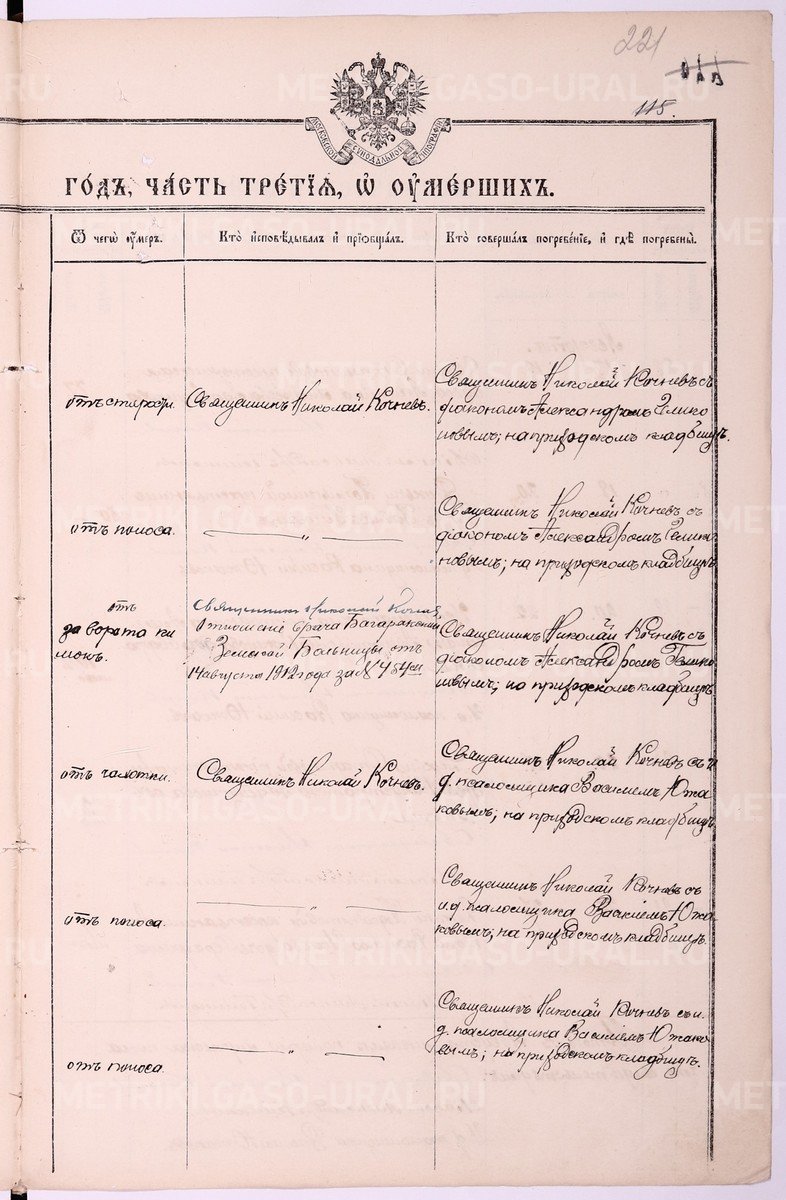 221
115.
МОСКОВСКОЙ СѴНОДАЛЬНОЙ ТИПОГРАФІИ
ГО́ДЪ, ЧА́СТЬ ТРЕ́ТІѦ, Ѡ҆ ОУ҆МЕ́РШИХЪ.
Ѿ чегѡ̀ ᲂу҆́меръ.
Кто̀ и҆сповѣ́дывалъ и҆ прїѡбща́лъ.
Кто̀ соверша́лъ погребе́нїе, и҆ гдѣ̀ погребены̀.
отъ старости.
Священникъ Николай Кочневъ.
Священникъ Николай Кочневъ съ
діакономъ Александромъ
новымъ; на приходскомъ кладбищѣ.
отъ поноса.
— „ —
Священникъ Николай Кочневъ съ
діакономъ Александромъ
новымъ; на приходскомъ кладбищѣ
отъ
заворота ки
шокъ.
Священникъ Николай
Отношеніе врача Багаракской
Земской Больницы отъ
14 августа 1912 года за №
Священникъ Николай Кочневъ съ
діакономъ Александромъ
новымъ; на приходскомъ кладбищѣ
отъ чахотки.
Священникъ Николай Кочневъ.
Священникъ Николай Кочневъ съ и.
д. псаломщика Василіемъ Южа
ковымъ; на приходскомъ кладбищѣ.
отъ поноса.
— „ —
Священникъ Николай Кочневъ съ
и.д. псаломщика Василіемъ Южа
ковымъ; на приходскомъ кладбищѣ.
отъ поноса.
— „ —
Священникъ Николай Кочневъ съ и.
д. псаломщика Василіемъ Южако
вымъ; на приходскомъ кладбищѣ.
METRIKI.GASO-URAL.RU